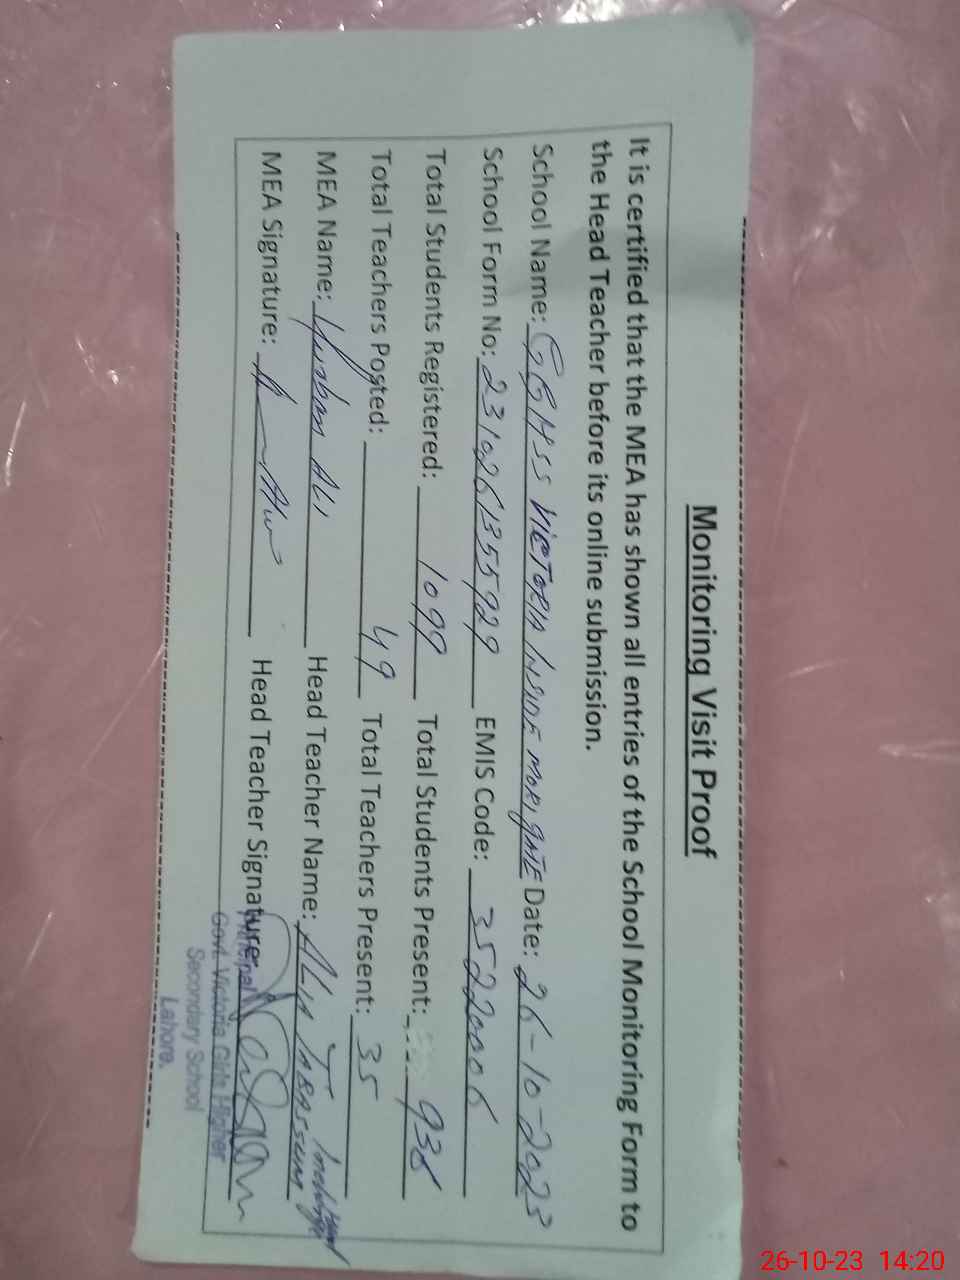 Monitoring Visit Proof
It is certified that the MEA has shown all entries of the School Monitoring Form to
the Head Teacher before its online submission.
School Name: GGHSS VICTORIA INSIDE MORI GATE Date: 26-10-2023
School Form No: 2310261355929 EMIS Code: 35220006
Total Students Registered: 1099 Total Students Present: 938
Total Teachers Posted: 49 Total Teachers Present: 35
MEA Name: ALI Head Teacher Name: ALIA TABASSUM
MEA Signature: Head Teacher Signature:
Principal
Govt. Victoria Girls Higher
Secondary School
Lahore.
26-10-23 14:20